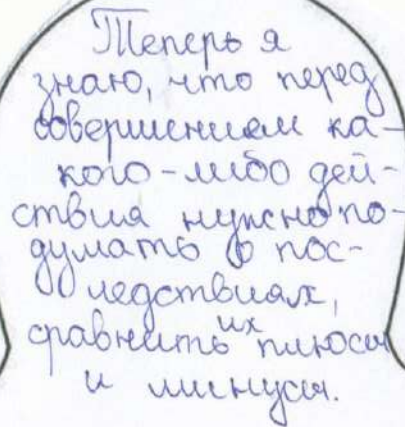 Теперь я
знаю, что перед
совершением ка-
кого-либо дей-
ствия нужно по-
думать о пос-
ледствиях,
сравнить их плюсы
и минусы.